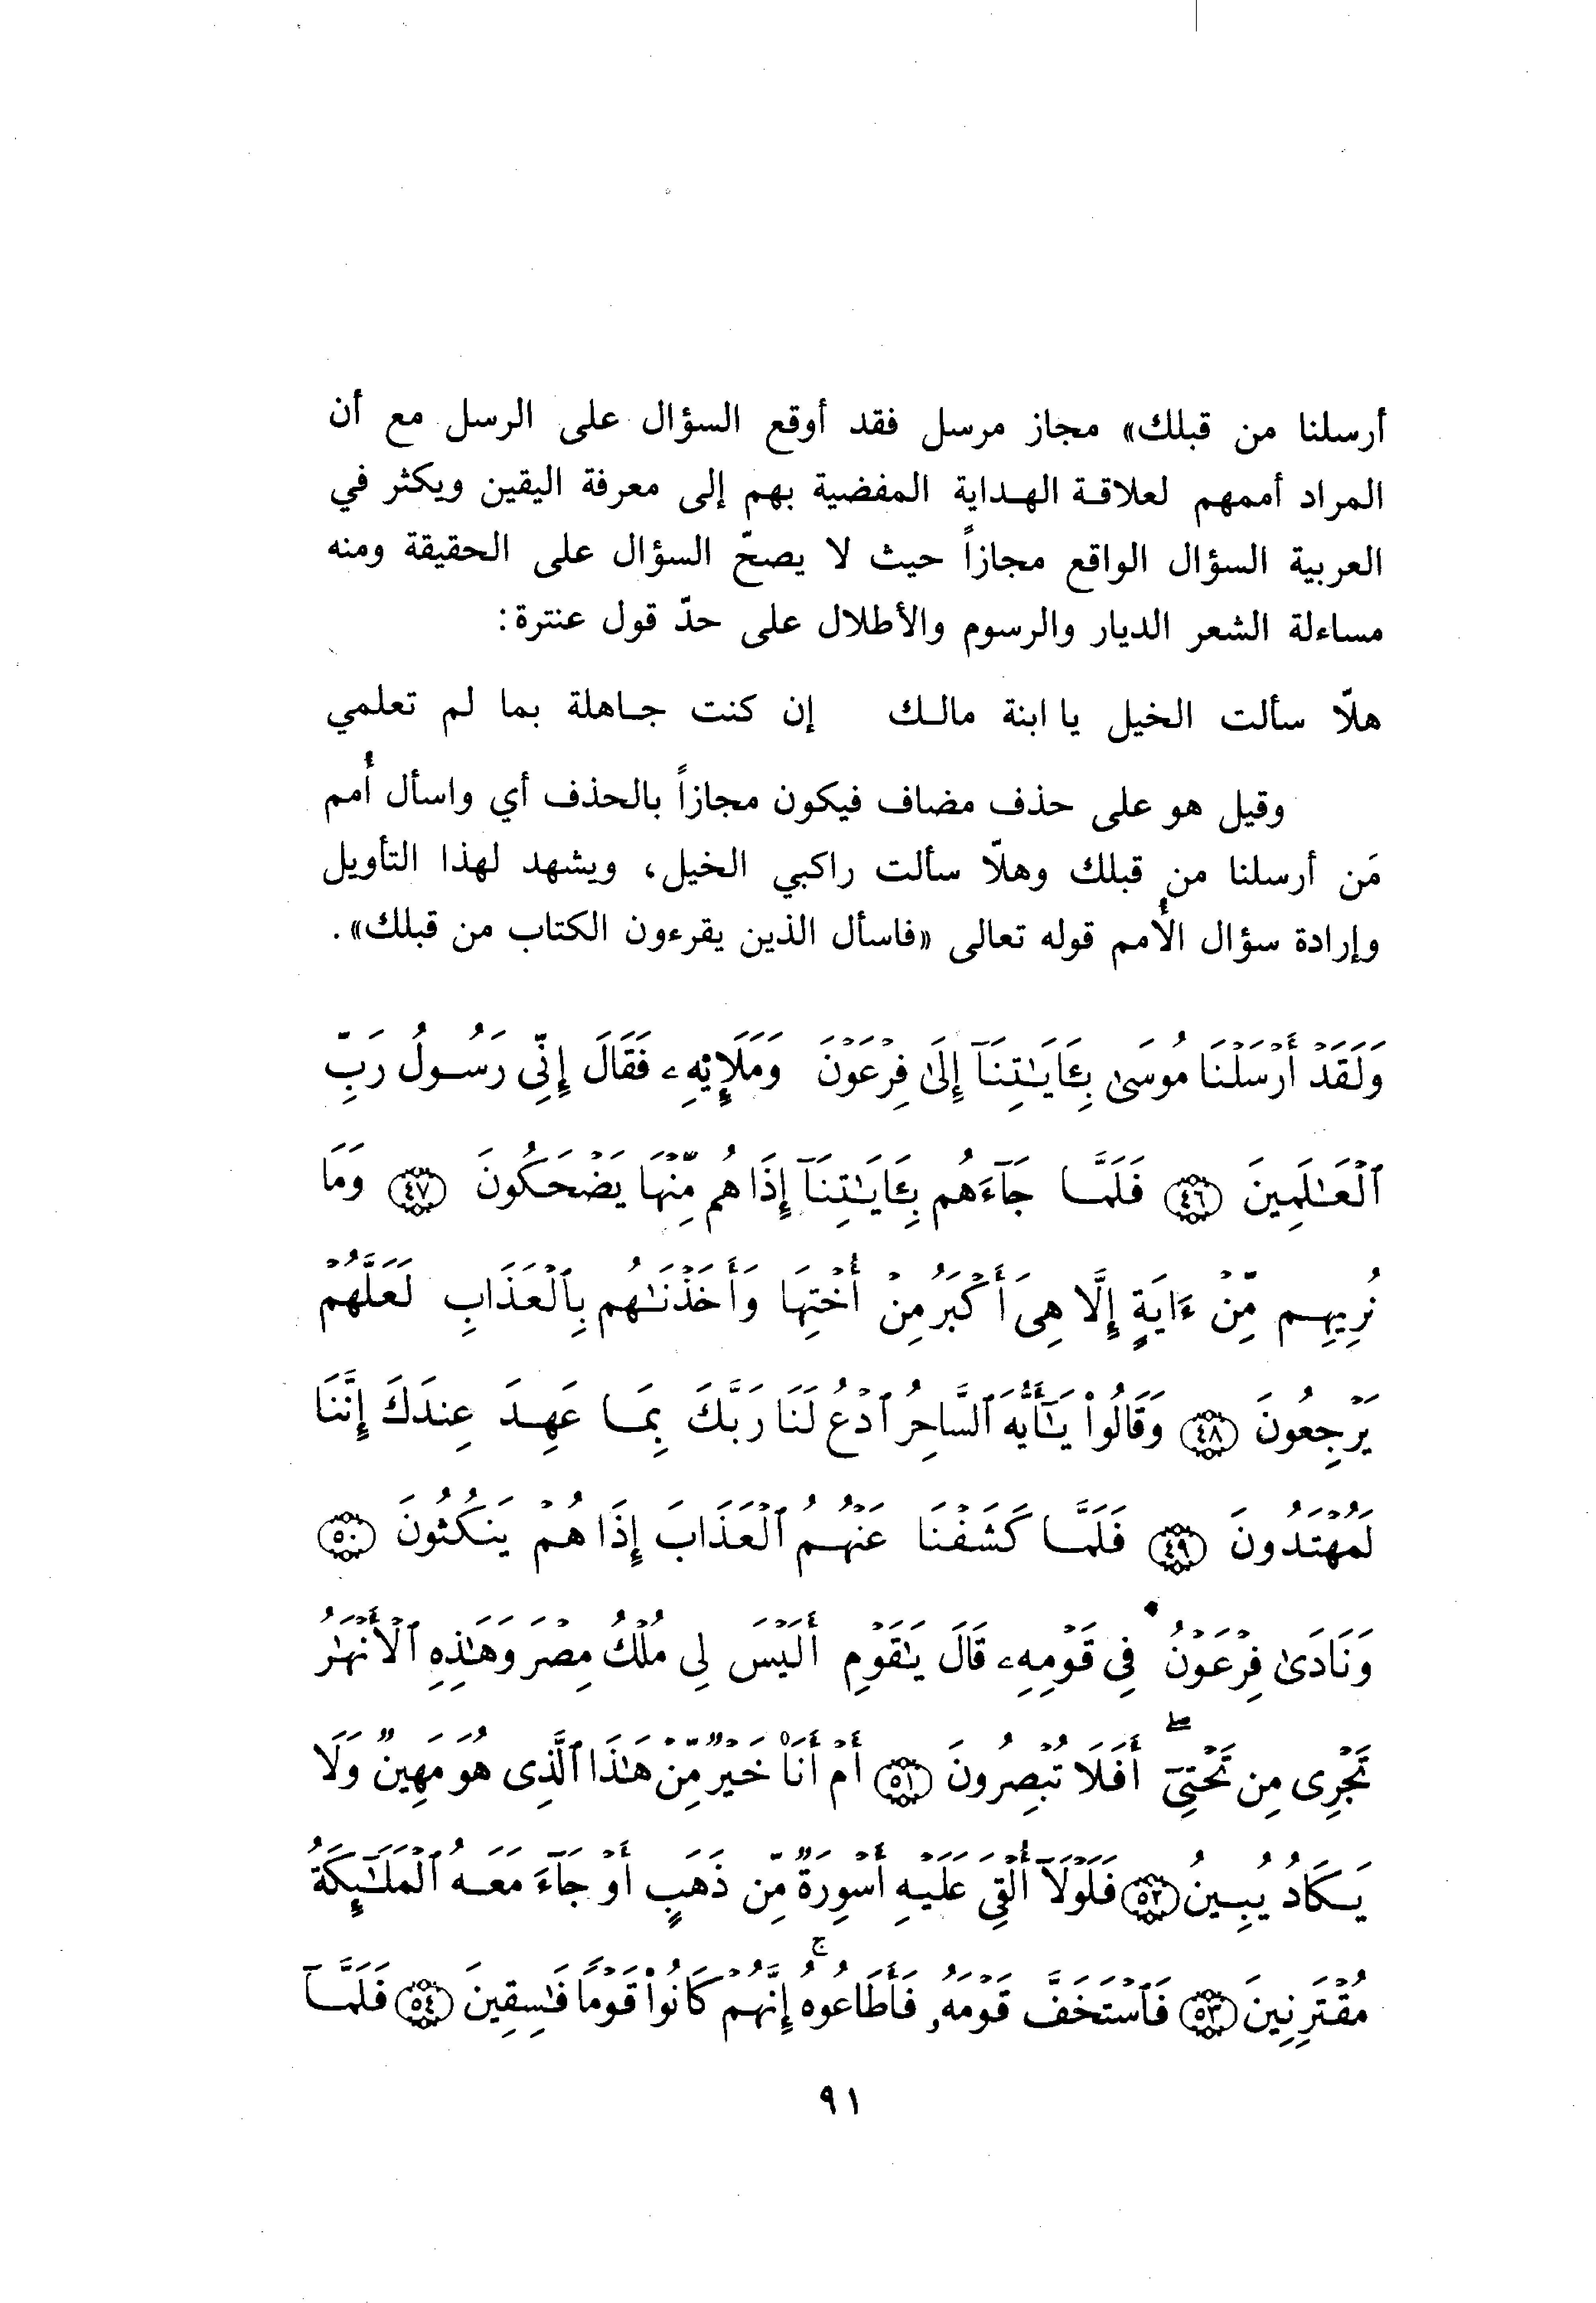 أرسلنا من قبلك» مجاز مرسل فقد أوقع السؤال على الرسل مع أن
المراد أممهم لعلاقة الهداية المفضية بهم إلى معرفة اليقين ويكثر في
العربية السؤال الواقع مجازاً حيث لا يصحّ السؤال على الحقيقة ومنه
مساءلة الشعر الديار والرسوم والأطلال على حدّ قول عنترة:
هلّا سألت الخيل يا ابنة مالك إن كنت جاهلة بما لم تعلمي
وقيل هو على حذف مضاف فيكون مجازاً بالحذف أي واسأل أُمم
مَن أرسلنا من قبلك وهلّا سألت راكبي الخيل، ويشهد لهذا التأويل
وإرادة سؤال الأُمم قوله تعالى «فاسأل الذين يقرءون الكتاب من قبلك».
وَلَقَدْ أَرْسَلْنَا مُوسَىٰ بِـَٔايَـٰتِنَآ إِلَىٰ فِرْعَوْنَ وَمَلَإِي۟هِۦ فَقَالَ إِنِّى رَسُولُ رَبِّ
ٱلْعَـٰلَمِينَ ﴿٤٦﴾ فَلَمَّا جَآءَهُم بِـَٔايَـٰتِنَآ إِذَا هُم مِّنْهَا يَضْحَكُونَ ﴿٤٧﴾ وَمَا
نُرِيهِم مِّنْ ءَايَةٍ إِلَّا هِىَ أَكْبَرُ مِنْ أُخْتِهَا وَأَخَذْنَـٰهُم بِٱلْعَذَابِ لَعَلَّهُمْ
يَرْجِعُونَ ﴿٤٨﴾ وَقَالُوا۟ يَـٰٓأَيُّهَ ٱلسَّاحِرُ ٱدْعُ لَنَا رَبَّكَ بِمَا عَهِدَ عِندَكَ إِنَّنَا
لَمُهْتَدُونَ ﴿٤٩﴾ فَلَمَّا كَشَفْنَا عَنْهُمُ ٱلْعَذَابَ إِذَا هُمْ يَنكُثُونَ ﴿٥٠﴾
وَنَادَىٰ فِرْعَوْنُ فِى قَوْمِهِۦ قَالَ يَـٰقَوْمِ أَلَيْسَ لِى مُلْكُ مِصْرَ وَهَـٰذِهِ ٱلْأَنْهَـٰرُ
تَجْرِى مِن تَحْتِىٓ ۖ أَفَلَا تُبْصِرُونَ ﴿٥١﴾ أَمْ أَنَا۠ خَيْرٌ مِّنْ هَـٰذَا ٱلَّذِى هُوَ مَهِينٌ وَلَا
يَكَادُ يُبِينُ ﴿٥٢﴾ فَلَوْلَآ أُلْقِىَ عَلَيْهِ أَسْوِرَةٌ مِّن ذَهَبٍ أَوْ جَآءَ مَعَهُ ٱلْمَلَـٰٓئِكَةُ
مُقْتَرِنِينَ ﴿٥٣﴾ فَٱسْتَخَفَّ قَوْمَهُۥ فَأَطَاعُوهُ ۚ إِنَّهُمْ كَانُوا۟ قَوْمًا فَـٰسِقِينَ ﴿٥٤﴾ فَلَمَّآ
٩١